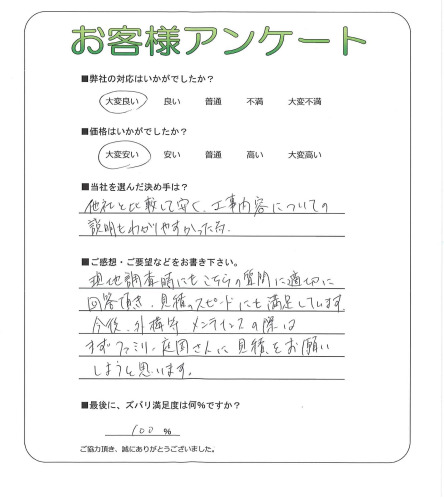 お客様アンケート
■弊社の対応はいかがでしたか?
大変良い 良い 普通 不満 大変不満
■価格はいかがでしたか?
大変安い 安い 普通 高い 大変高い
■当社を選んだ決め手は?
他社と比較して安く、工事内容についての
説明もわかりやすかった為。
■ご感想・ご要望などをお書き下さい。
現地調査時にもこちらの質問に適切に
回答頂き、見積のスピードにも満足しています
今後、外構等 メンテナンスの際は
まずファミリー庭園さんに見積をお願い
しようと思います。
■最後に、ズバリ満足度は何%ですか?
100 %
ご協力頂き、誠にありがとうございました。